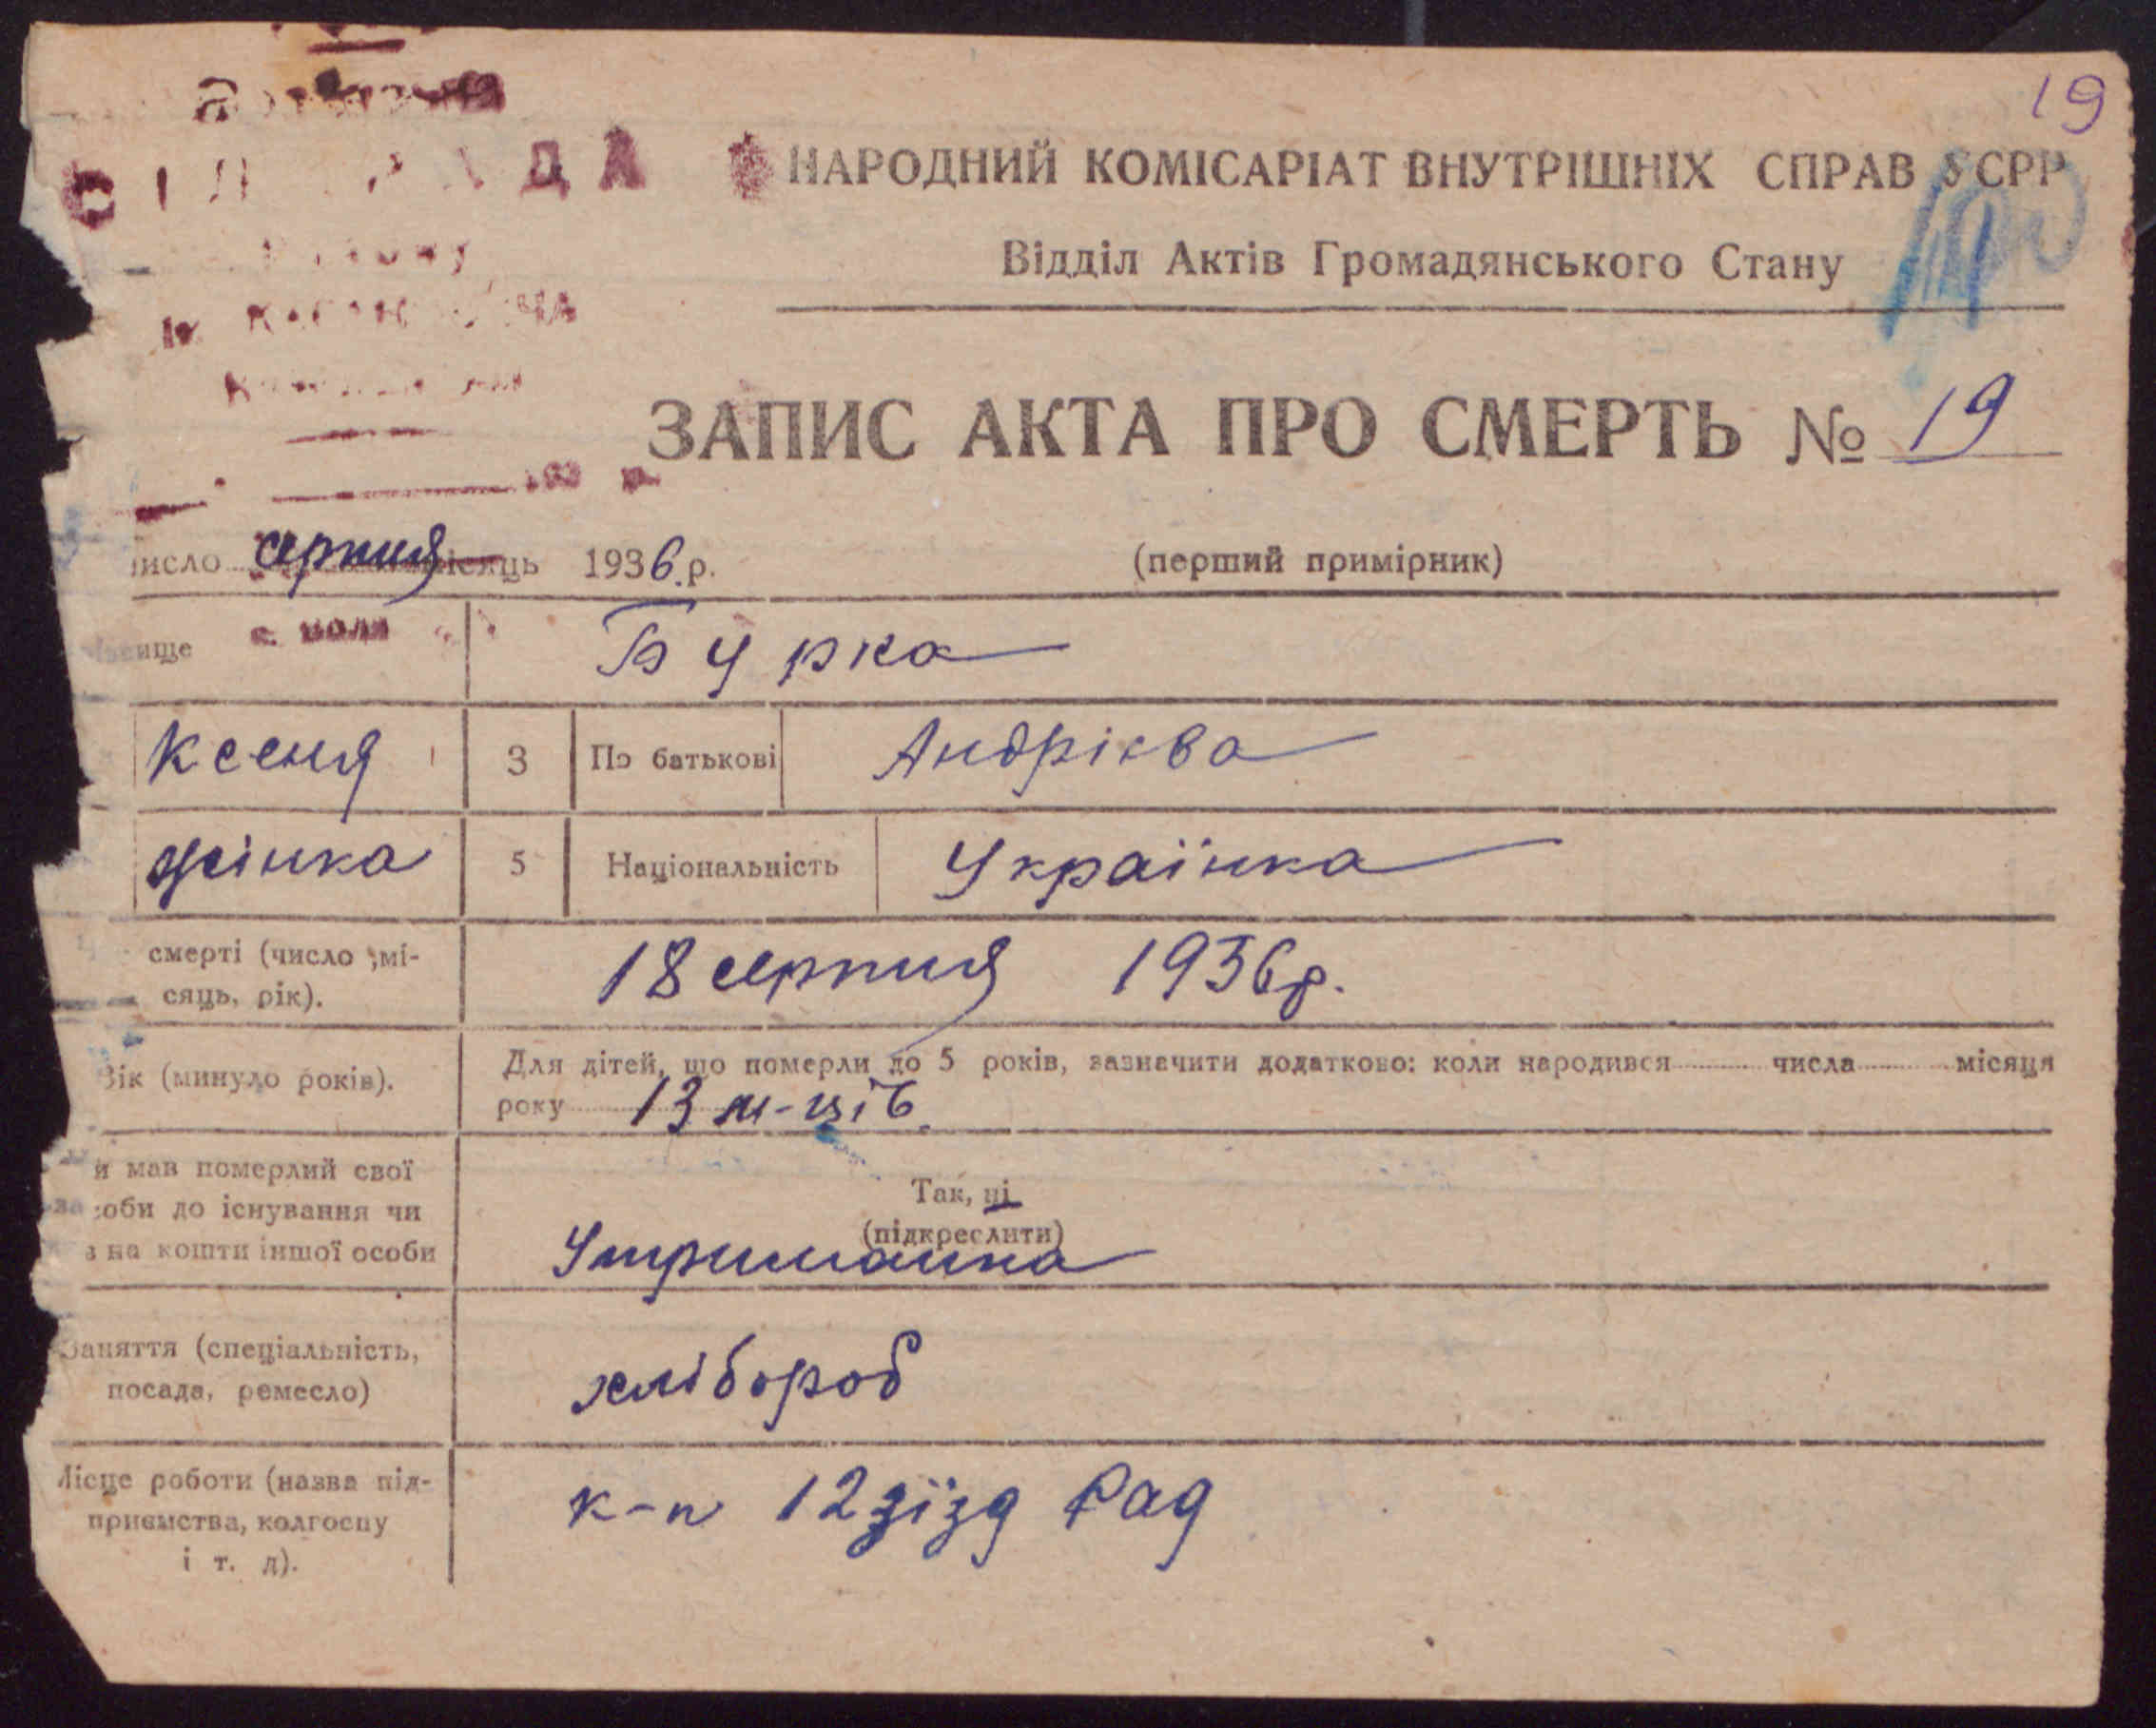 19
НАРОДНИЙ КОМІСАРІАТ ВНУТРІШНІХ СПРАВ УСРР
Відділ Актів Громадянського Стану
ЗАПИС АКТА ПРО СМЕРТЬ № 19
исло серпня місяць 1936 р.
(перший примірник)
вище Бурка
Ксеня 3 По батькові Андрієва
жінка 5 Національність Українка
смерті (число мі-
сяць, рік).
18 серпня 1936 р.
Вік (минуло років).
Для дітей, що померли до 5 років, зазначити додатково: коли народився числа місяця
року 13 м-ців.
и мав померлий свої
засоби до існування чи
в на кошти іншої особи
Так, ні
(підкреслити)
Утриманка
Заняття (спеціальність,
посада, ремесло)
хлібороб
Місце роботи (назва під-
приємства, колгоспу
і т. д).
к-п 12 зізд Рад